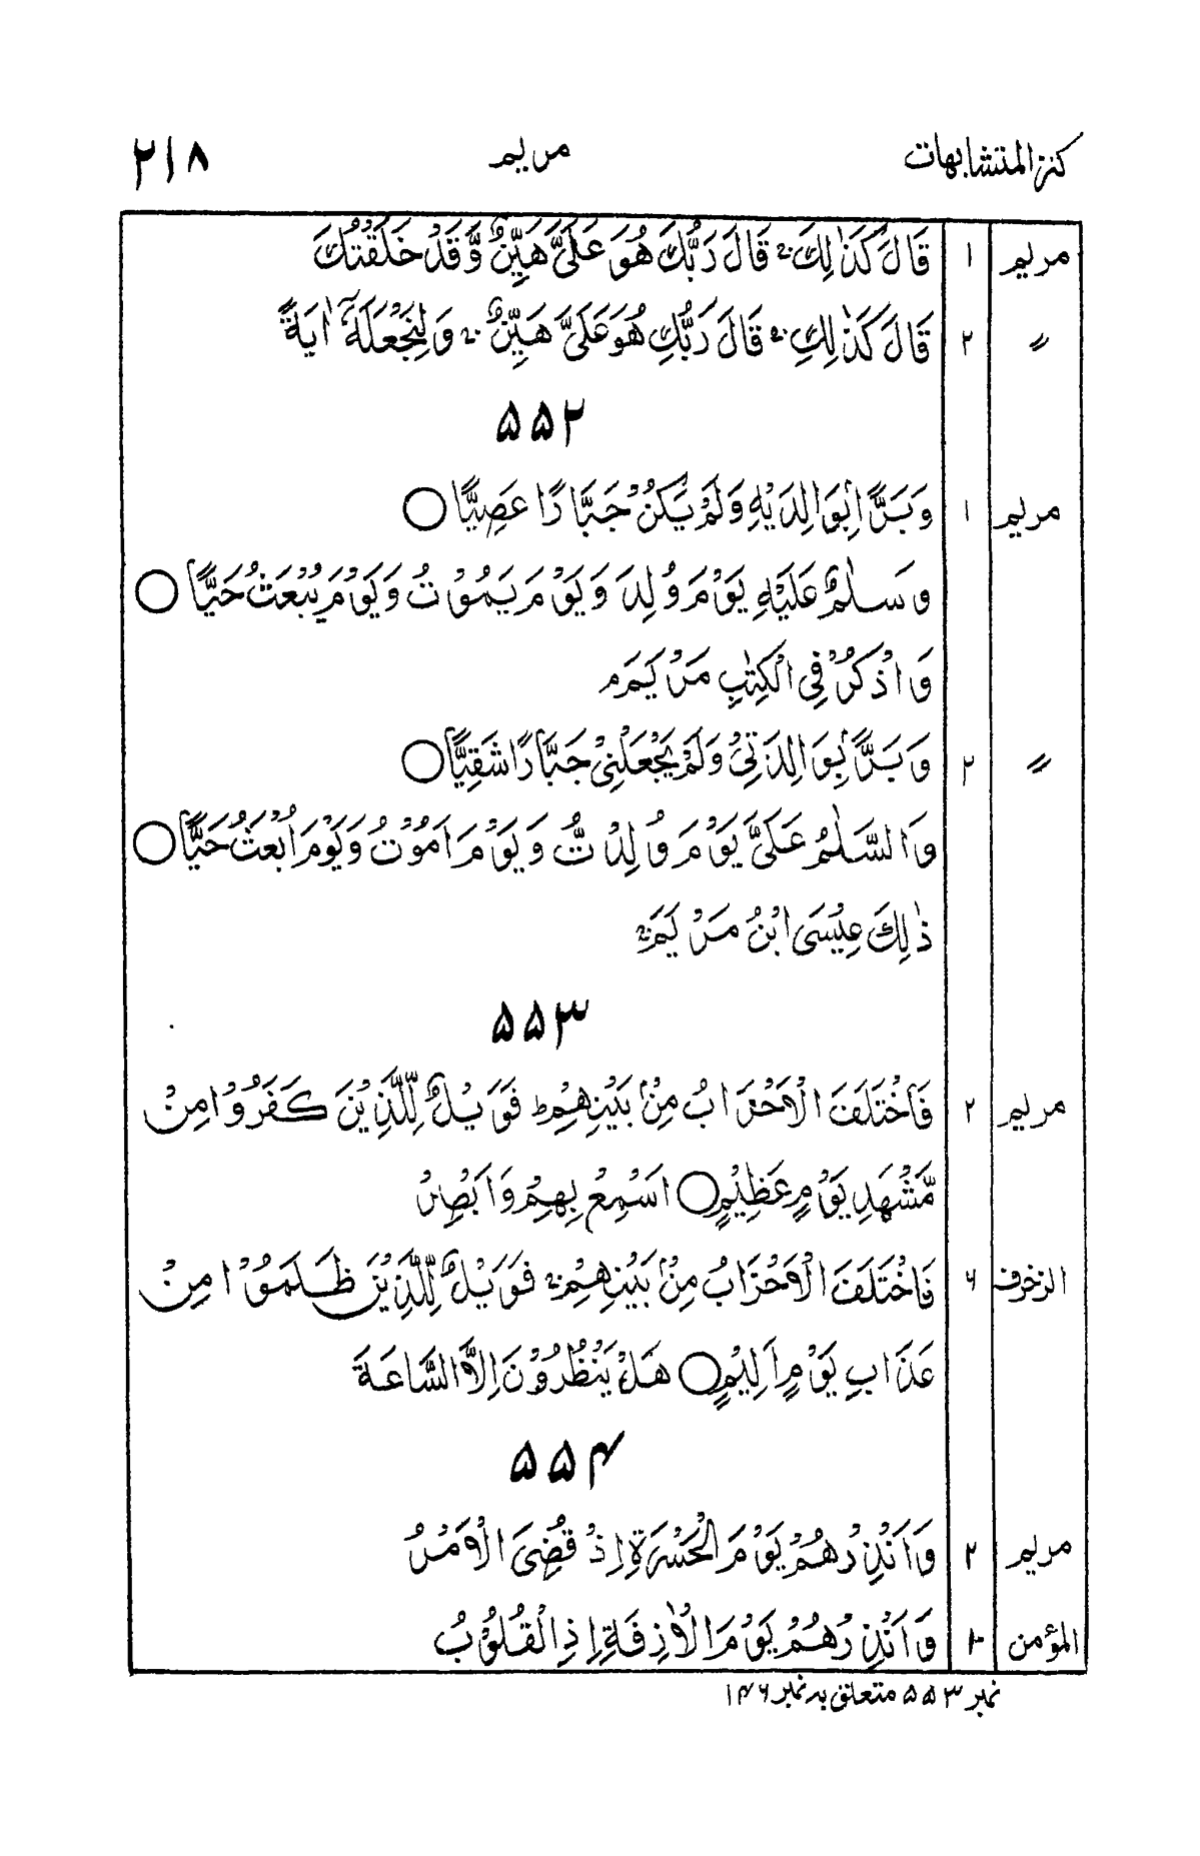 كنز المتشابهات مريم ۲۱۸
مريم ۱ قَالَ كَذٰلِكَ ۚ قَالَ رَبُّكَ هُوَ عَلَيَّ هَيِّنٌ وَّقَدْ خَلَقْتُكَ
〃 ۲ قَالَ كَذٰلِكِ ۚ قَالَ رَبُّكِ هُوَ عَلَيَّ هَيِّنٌ ۚ وَلِنَجْعَلَهٗٓ اٰيَةً
۵۵۲
مريم ۱ وَبَرًّۢا بِوَالِدَيْهِ وَلَمْ يَكُنْ جَبَّارًا عَصِيًّا ○
وَسَلٰمٌ عَلَيْهِ يَوْمَ وُلِدَ وَيَوْمَ يَمُوْتُ وَيَوْمَ يُبْعَثُ حَيًّا ○
وَاذْكُرْ فِي الْكِتٰبِ مَرْيَمَ ۘ
〃 ۲ وَبَرًّۢا بِوَالِدَتِيْ وَلَمْ يَجْعَلْنِيْ جَبَّارًا شَقِيًّا ○
وَالسَّلٰمُ عَلَيَّ يَوْمَ وُلِدْتُّ وَيَوْمَ اَمُوْتُ وَيَوْمَ اُبْعَثُ حَيًّا ○
ذٰلِكَ عِيْسَى ابْنُ مَرْيَمَ ۚ
۵۵۳
مريم ۲ فَاخْتَلَفَ الْاَحْزَابُ مِنْۢ بَيْنِهِمْ ۚ فَوَيْلٌ لِّلَّذِيْنَ كَفَرُوْا مِنْ
مَّشْهَدِ يَوْمٍ عَظِيْمٍ ○ اَسْمِعْ بِهِمْ وَاَبْصِرْ
الزخرف ۶ فَاخْتَلَفَ الْاَحْزَابُ مِنْۢ بَيْنِهِمْ ۚ فَوَيْلٌ لِّلَّذِيْنَ ظَلَمُوْا مِنْ
عَذَابِ يَوْمٍ اَلِيْمٍ ○ هَلْ يَنْظُرُوْنَ اِلَّا السَّاعَةَ
۵۵۴
مريم ۲ وَاَنْذِرْهُمْ يَوْمَ الْحَسْرَةِ اِذْ قُضِيَ الْاَمْرُ
المؤمن ۲ وَاَنْذِرْهُمْ يَوْمَ الْاٰزِفَةِ اِذِ الْقُلُوْبُ
نمبر ۵۵۳ متعلق بہ نمبر ۱۴۶